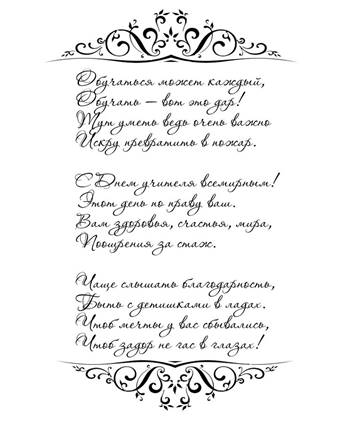 Обучаться может каждый,
Обучать — вот это дар!
Тут уметь ведь очень важно
Искру превратить в пожар.
С Днем учителя всемирным!
Этот день по праву ваш.
Вам здоровья, счастья, мира,
Поощрения за стаж.
Чаще слышать благодарность,
Быть с детишками в ладах.
Чтоб мечты у вас сбывались,
Чтоб задор не гас в глазах!